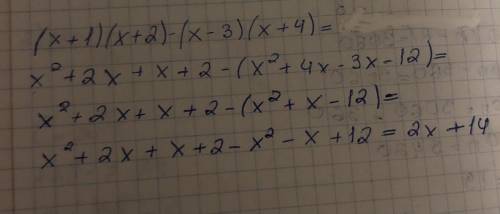 (x+1)(x+2)-(x-3)(x+4)=
x²+2x+x+2-(x²+4x-3x-12)=
x²+2x+x+2-(x²+x-12)=
x²+2x+x+2-x²-x+12=2x+14